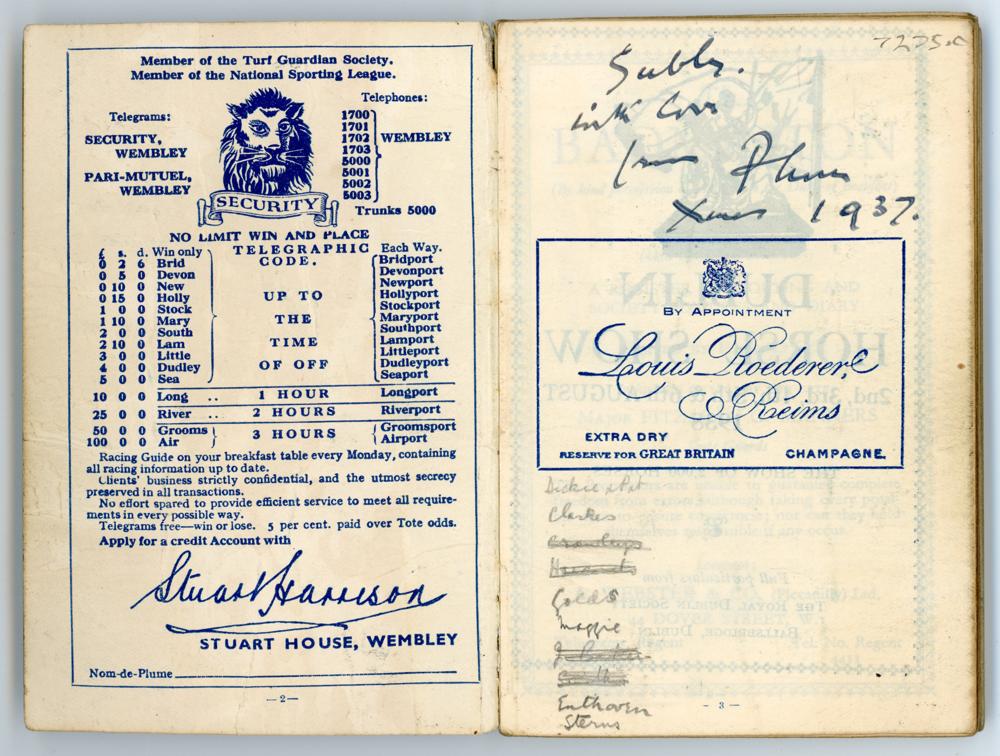 Member of the Turf Guardian Society.
Member of the National Sporting League.
Telegrams:
SECURITY,
WEMBLEY
PARI-MUTUEL,
WEMBLEY
SECURITY
Telephones:
1700
1701
1702
1703
5000
5001
5002
5003
WEMBLEY
Trunks 5000
NO LIMIT WIN AND PLACE
£ s. d. Win only TELEGRAPHIC Each Way.
0 2 6 Brid CODE. Bridport
0 5 0 Devon Devonport
0 10 0 New Newport
0 15 0 Holly UP TO Hollyport
1 0 0 Stock Stockport
1 10 0 Mary THE Maryport
2 0 0 South Southport
2 10 0 Lam TIME Lamport
3 0 0 Little Littleport
4 0 0 Dudley OF OFF Dudleyport
5 0 0 Sea Seaport
10 0 0 Long .. 1 HOUR Longport
25 0 0 River .. 2 HOURS Riverport
50 0 0 Grooms 3 HOURS Groomsport
100 0 0 Air Airport
Racing Guide on your breakfast table every Monday, containing
all racing information up to date.
Clients' business strictly confidential, and the utmost secrecy
preserved in all transactions.
No effort spared to provide efficient service to meet all require-
ments in every possible way.
Telegrams free—win or lose. 5 per cent. paid over Tote odds.
Apply for a credit Account with
Stuart Harrison
STUART HOUSE, WEMBLEY
Nom-de-Plume
—2—
with love
from Plum
Xmas 1937.
BY APPOINTMENT
Louis Roederer
Reims
EXTRA DRY
RESERVE FOR GREAT BRITAIN CHAMPAGNE.
Dickie & Pat
Clarkes
Golds
Maggie
Enthoven
Sterns
- 3 -